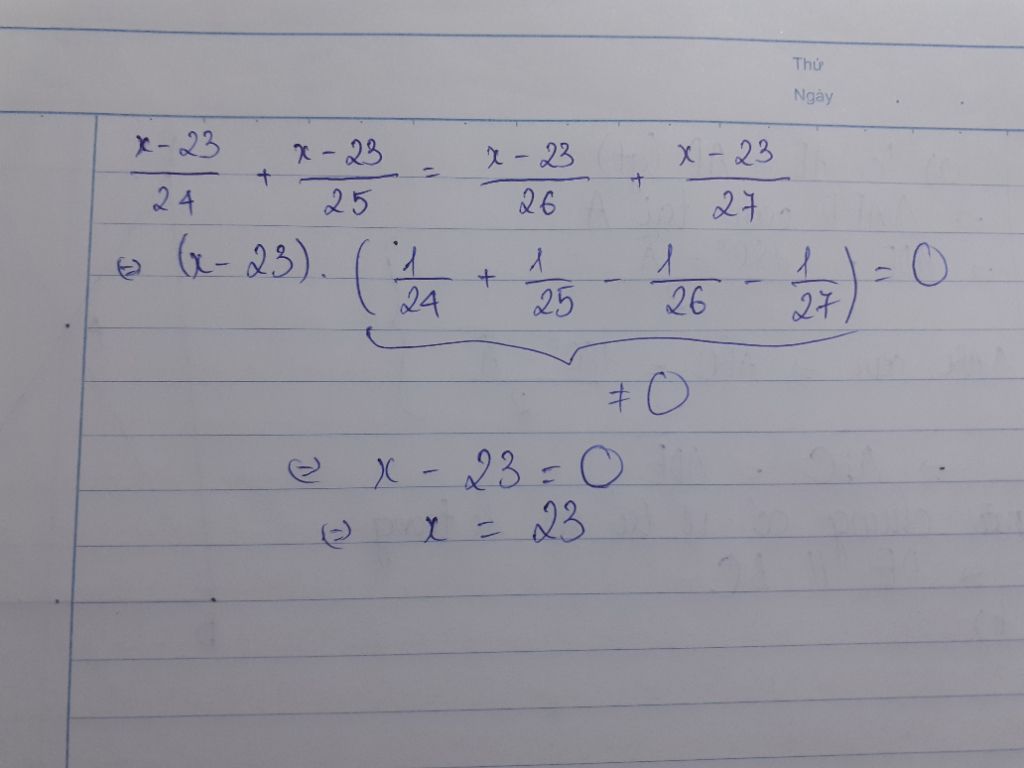 Thứ
Ngày
x - 23/24 + x - 23/25 = x - 23/26 + x - 23/27
⇔ (x - 23) . (1/24 + 1/25 - 1/26 - 1/27) = 0
≠ 0
⇔ x - 23 = 0
⇔ x = 23